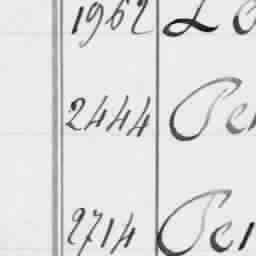 1962 Lo
2444 Per
2714 Per